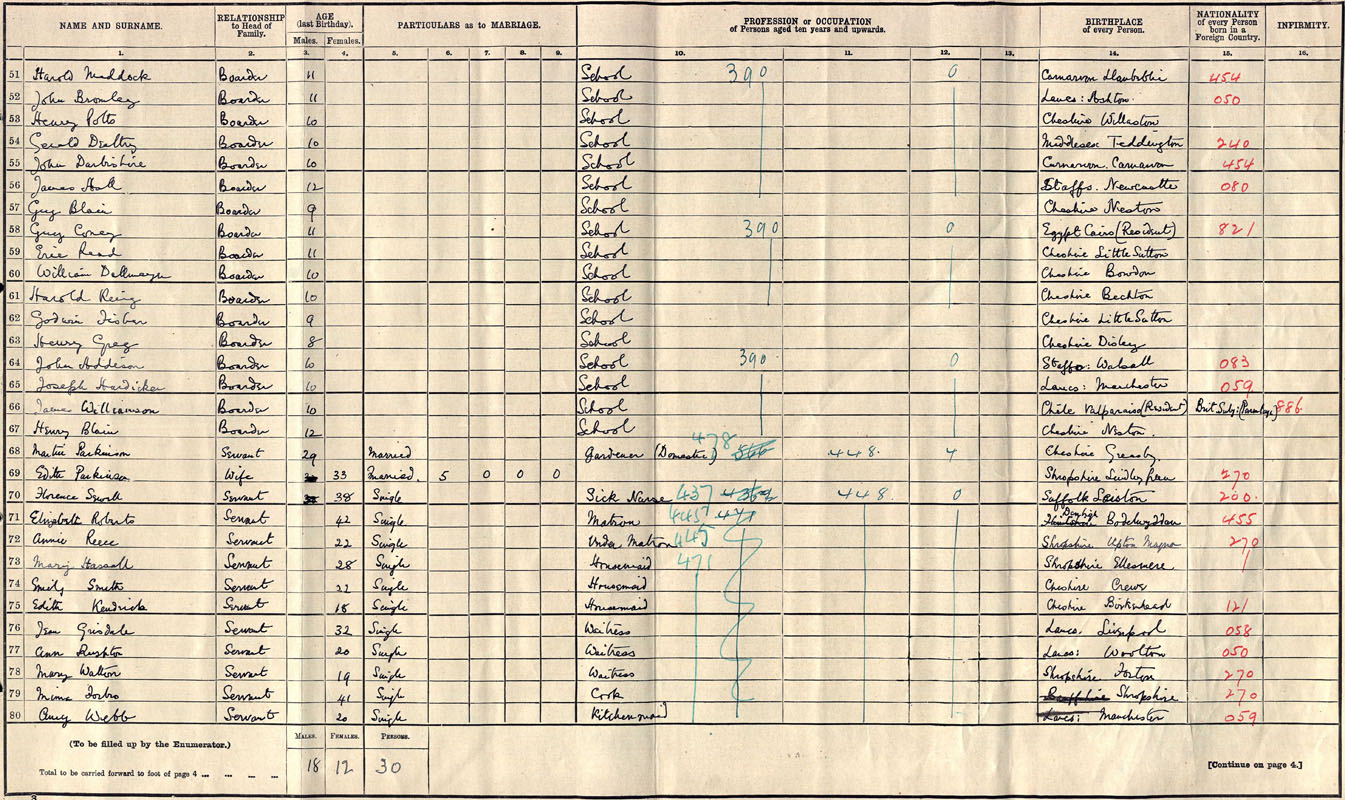 NAME AND SURNAME. RELATIONSHIP to Head of Family. AGE (last Birthday). PARTICULARS as to MARRIAGE. PROFESSION or OCCUPATION of Persons aged ten years and upwards. BIRTHPLACE of every Person. NATIONALITY of every Person born in a Foreign Country. INFIRMITY.
Males. Females.
1. 2. 3. 4. 5. 6. 7. 8. 9. 10. 11. 12. 13. 14. 15. 16.
51 Harold Maddock Boarder 11 School 390 0 Carnarvon 454
52 John Bromley Boarder 11 School Lancs: Ashton 050
53 Henry Potts Boarder 10 School Cheshire Willaston
54 Gerald Boarder 10 School Middlesex Teddington 240
55 John Darbishire Boarder 10 School Carnarvon. Carnarvon 454
56 James Hall Boarder 12 School Staffs. Newcastle 080
57 Guy Blain Boarder 9 School Cheshire Neston
58 Guy Coney Boarder 11 School 390 0 Egypt Cairo (Resident) 821
59 Eric Read Boarder 11 School Cheshire Little Sutton
60 William Boarder 10 School Cheshire Bowdon
61 Harold Boarder 10 School Cheshire
62 Godwin Fisher Boarder 9 School Cheshire Little Sutton
63 Henry Greg Boarder 8 School Cheshire Disley
64 John Addison Boarder 10 School 390 0 Staffs: Walsall 083
65 Joseph Hardicker Boarder 10 School Lancs: Manchester 059
66 James Williamson Boarder 10 School Chile Valparaiso (Resident) Brit Subj: (Parentage) 886.
67 Henry Blain Boarder 12 School Cheshire Neston.
68 Martin Parkinson Servant 29 Married Gardener (Domestic) 478 448. 4 Cheshire Greasby
69 Edith Parkinson Wife 33 Married. 5 0 0 0 Shropshire 270
70 Florence Servant 38 Single Sick Nurse 437 448. 0 Suffolk Leiston 200.
71 Elizabeth Roberts Servant 42 Single Matron 445 Denbigh Bodelwyddan 455
72 Annie Reece Servant 22 Single Under Matron 445 Shropshire Upton Magna 270
73 Mary Hassall Servant 28 Single Housemaid 471 Shropshire Ellesmere
74 Emily Smith Servant 22 Single Housemaid Cheshire Crewe
75 Edith Kendrick Servant 18 Single Housemaid Cheshire Birkenhead 121
76 Jean Grisdale Servant 32 Single Waitress Lancs. Liverpool 058
77 Ann Rushton Servant 20 Single Waitress Lancs: Woolton 050
78 Mary Walton Servant 19 Single Waitress Shropshire Forton 270
79 Servant 41 Single Cook Shropshire 270
80 Amy Webb Servant 20 Single Kitchenmaid Lancs: Manchester 059
(To be filled up by the Enumerator.) MALES. FEMALES. PERSONS.
Total to be carried forward to foot of page 4 ... ... ... ... 18 12 30 [Continue on page 4.]
3